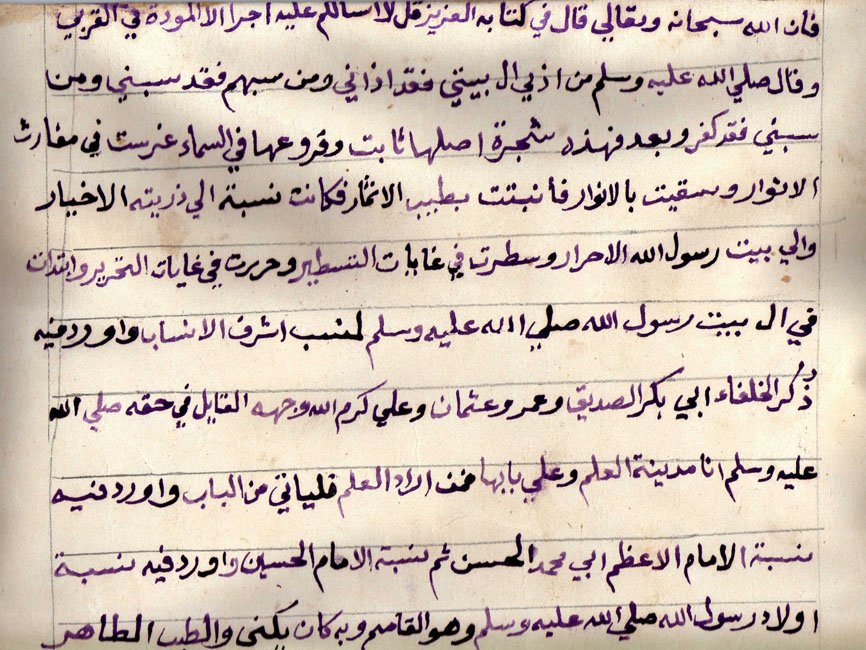 فان الله سبحانه وتعالي قال في كتابه العزيز قل لا اسالكم عليه اجرا الا المودة في القربي
وقال صلي الله عليه وسلم من اذي ال بيتي فقد اذاني ومن سبهم فقد سبني ومن
سبني فقد كفر وبعد فهذه شجرة اصلها ثابت وفروعها في السماء غرست في مغارث
الانوار وسقيت بالانوار فأنبتت بطيب الاثمار فكانت نسبة الي ذريته الاخيار
والي بيت رسول الله الاحرار وسطرت في غايات التسطير وحررت في غايات التحرير وابتدات
في ال بيت رسول الله صلي الله عليه وسلم لنسب اشرف الانساب واورد فيه
ذُكر الخلفاء ابي بكر الصديق وعمر وعثمان وعلي كرم الله وجهه القايل في حقه صلي الله
عليه وسلم انا مدينة العلم وعلي بابها فمن اراد العلم فلياتي من الباب واورد فيه
نسبة الامام الاعظم ابي محمد الحسن ثم نسبة الامام الحسين واورد فيه نسبة
اولاد رسول الله صلي الله عليه وسلم وهو القاسم وبه كان يكنى والطيب الطاهر